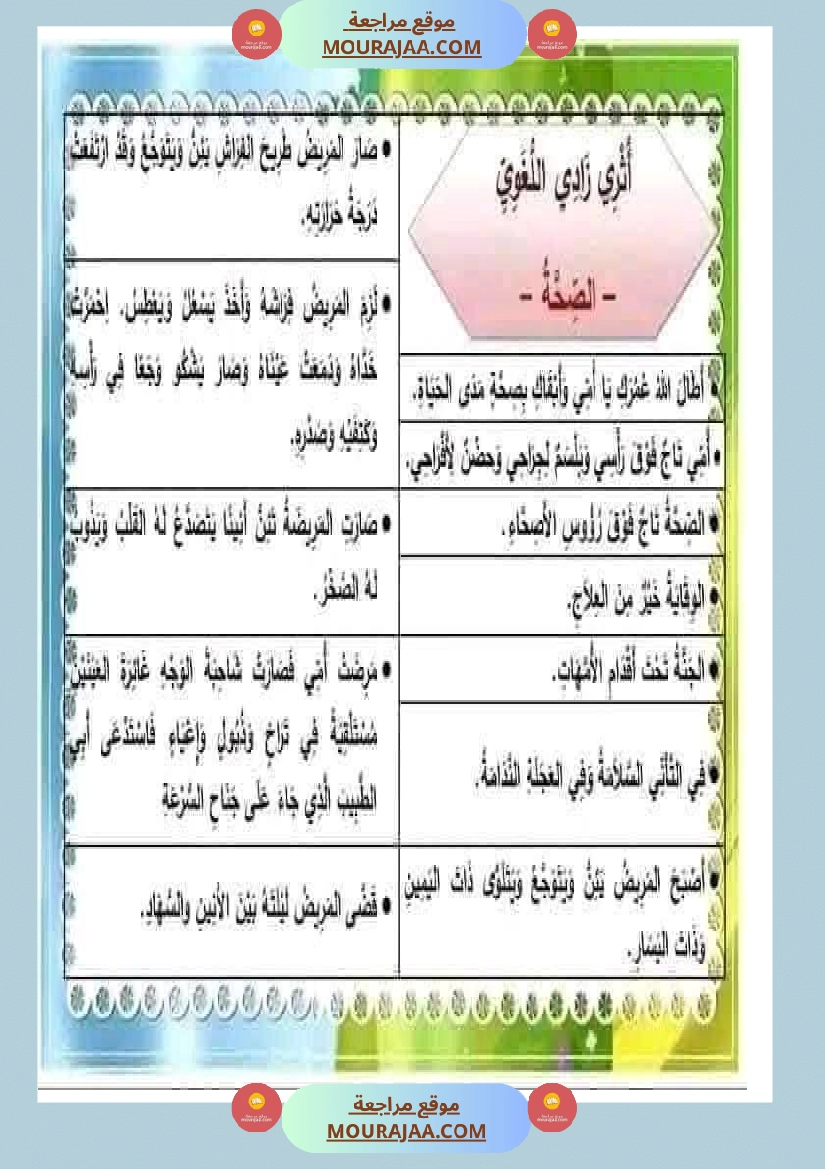 موقع مراجعة
MOURAJAA.COM
أُثْرِي زَادِي اللُّغَوِيّ
– الصِّحَّةُ –
• أَطَالَ اللهُ عُمُرَكِ يَا أُمِّي وَأَبْقَاكِ بِصِحَّةٍ مَدَى الحَيَاةِ.
• أُمِّي تَاجٌ فَوْقَ رَأْسِي وَبَلْسَمٌ لِجِرَاحِي وَحضْنٌ لِأَفْرَاحِي.
• الصِّحَّةُ تَاجٌ فَوْقَ رُؤُوسِ الأَصِحَّاءِ.
• الوِقَايَةُ خَيْرٌ مِنَ العِلاَجِ.
• الجَنَّةُ تَحْتَ أَقْدَامِ الأُمَّهَاتِ.
• فِي التَّأَنِّي السَّلاَمَةُ وَفِي العَجَلَةِ النَّدَامَةُ.
• أَصْبَحَ المَرِيضُ يَئِنُّ وَيَتَوَجَّعُ وَيَتَلَوَّى ذَاتَ اليَمِينِ
وَذَاتَ اليَسَارِ.
• صَارَ المَرِيضُ طَرِيحَ الفِرَاشِ يَئِنُّ وَيَتَوَجَّعُ وَقَدْ ارْتَفَعَتْ
دَرَجَةُ حَرَارَتِهِ.
• لَزِمَ المَرِيضُ فِرَاشَهُ وَأَخَذَ يَسْعُلُ وَيَعْطِسُ. اِحْمَرَّتْ
خَدَّاهُ وَدَمَعَتْ عَيْنَاهُ وَصَارَ يَشْكُو وَجَعًا فِي رَأْسِهِ
وَكَتِفَيْهِ وَصَدْرِهِ.
• صَارَتِ المَرِيضَةُ تَئِنُّ أَنِينًا يَتَصَدَّعُ لَهُ القَلْبُ وَيَذُوبُ
لَهُ الصَّخْرُ.
• مَرِضَتْ أُمِّي فَصَارَتْ شَاحِبَةَ الوَجْهِ غَائِرَةَ العَيْنَيْنِ
مُسْتَلْقِيَةً فِي تَرَاخٍ وَذُبُولٍ وَإِعْيَاءٍ فَاسْتَدْعَى أَبِي
الطَّبِيبَ الَّذِي جَاءَ عَلَى جَنَاحِ السُّرْعَةِ
• قَضَّى المَرِيضُ لَيْلَتَهُ بَيْنَ الأَنِينِ والسُّهَادِ.
موقع مراجعة
MOURAJAA.COM